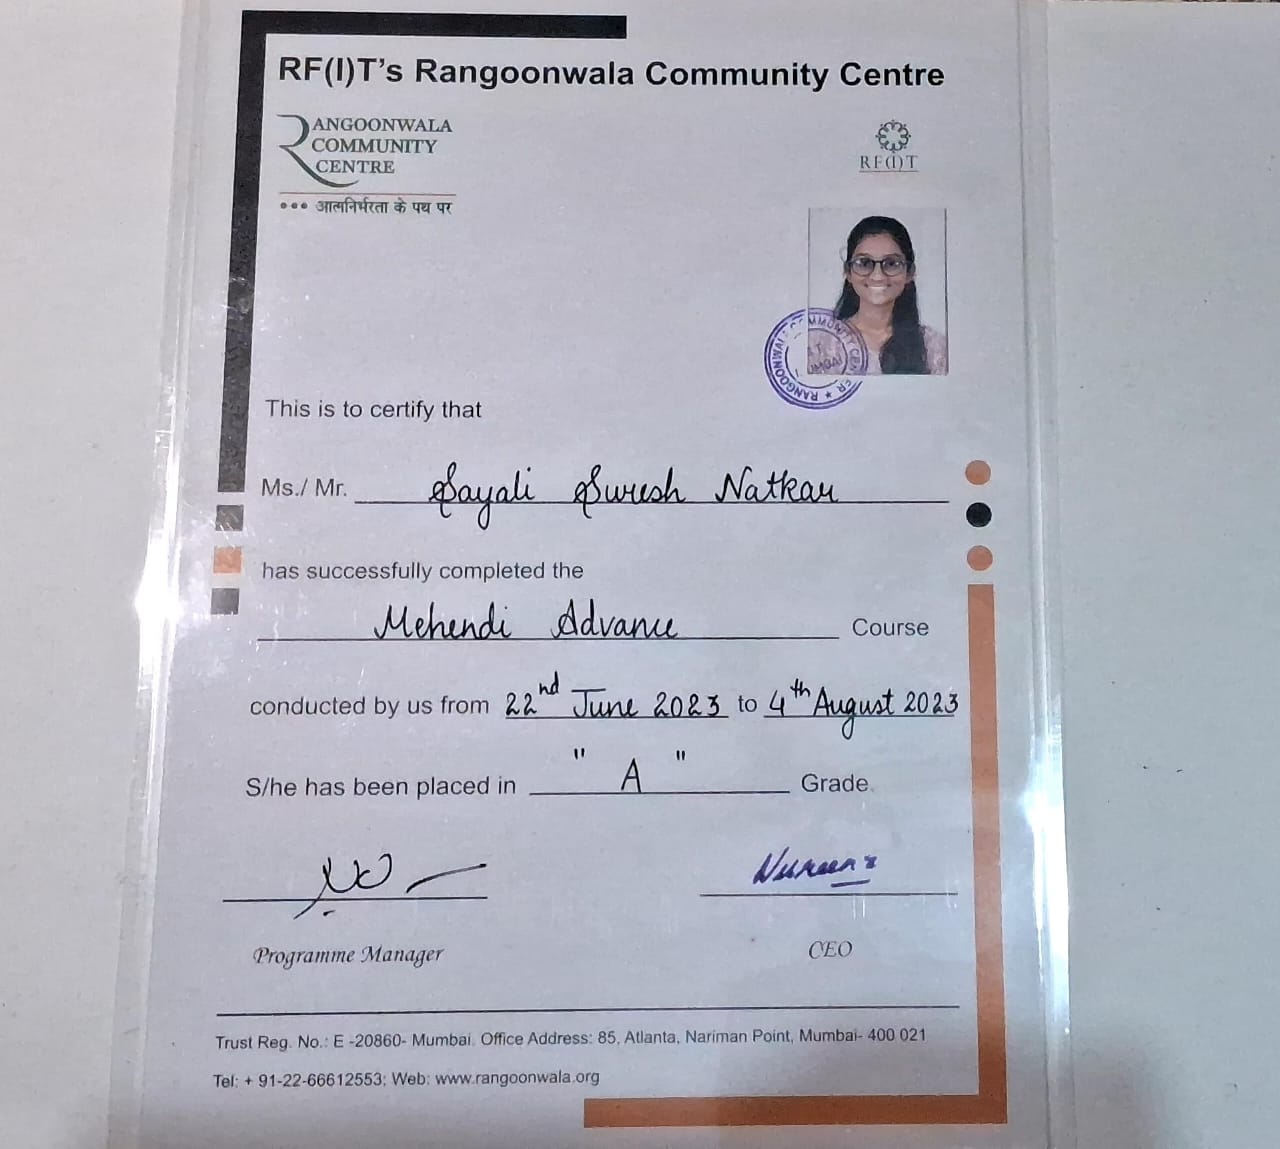 RF(I)T's Rangoonwala Community Centre
RANGOONWALA
COMMUNITY
CENTRE
RF(I)T
••• आत्मनिर्भरता के पथ पर
RANGOONWALA COMMUNITY CENTRE ★
This is to certify that
Ms./ Mr. Sayali Suresh Natkar
has successfully completed the
Mehendi Advance Course
conducted by us from 22nd June 2023 to 4th August 2023
S/he has been placed in "A" Grade.
Programme Manager
CEO
Trust Reg. No.: E -20860- Mumbai. Office Address: 85, Atlanta, Nariman Point, Mumbai- 400 021
Tel: + 91-22-66612553; Web: www.rangoonwala.org